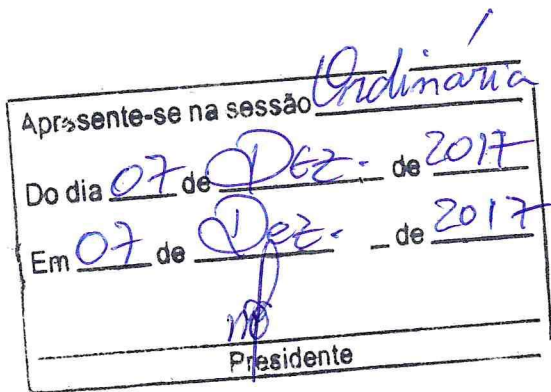 Apresente-se na sessão Ordinária
Do dia 07 de Dez. de 2017
Em 07 de Dez. de 2017
Presidente